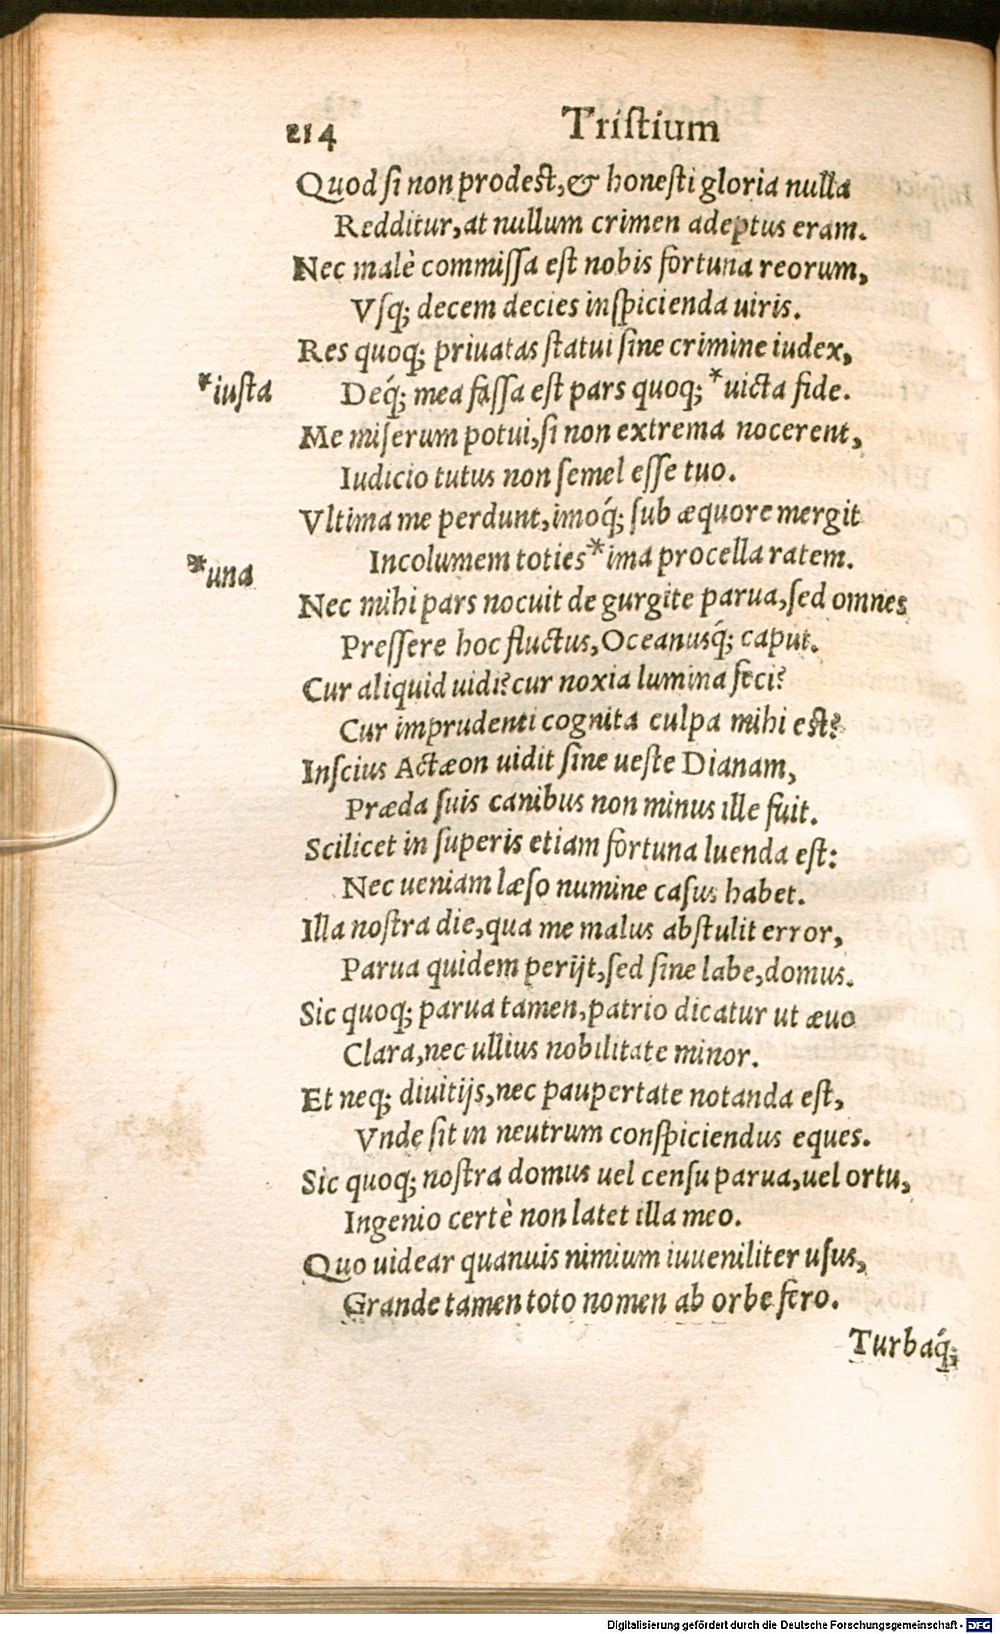 214 Tristium
Quod si non prodest,& honesti gloria nulla
Redditur,at nullum crimen adeptus eram.
Nec malè commissa est nobis fortuna reorum,
Vsq; decem decies inspicienda uiris.
Res quoq; priuatas statui sine crimine iudex,
*iusta Deq́; mea fassa est pars quoq; *uicta fide.
Me miserum potui,si non extrema nocerent,
Iudicio tutus non semel esse tuo.
Vltima me perdunt,imoq́; sub æquore mergit
*una Incolumem toties *ima procella ratem.
Nec mihi pars nocuit de gurgite parua,sed omnes
Pressere hoc fluctus,Oceanusq́; caput.
Cur aliquid uidi? cur noxia lumina feci?
Cur imprudenti cognita culpa mihi est?
Inscius Actæon uidit sine ueste Dianam,
Præda suis canibus non minus ille fuit.
Scilicet in superis etiam fortuna luenda est:
Nec ueniam læso numine casus habet.
Illa nostra die,qua me malus abstulit error,
Parua quidem perijt,sed sine labe,domus.
Sic quoq; parua tamen,patrio dicatur ut æuo
Clara,nec ullius nobilitate minor.
Et neq; diuitijs,nec paupertate notanda est,
Vnde sit in neutrum conspiciendus eques.
Sic quoq; nostra domus uel censu parua,uel ortu,
Ingenio certè non latet illa meo.
Quo uidear quanuis nimium iuueniliter usus,
Grande tamen toto nomen ab orbe fero.
Turbaq́;
Digitalisierung gefördert durch die Deutsche Forschungsgemeinschaft - DFG